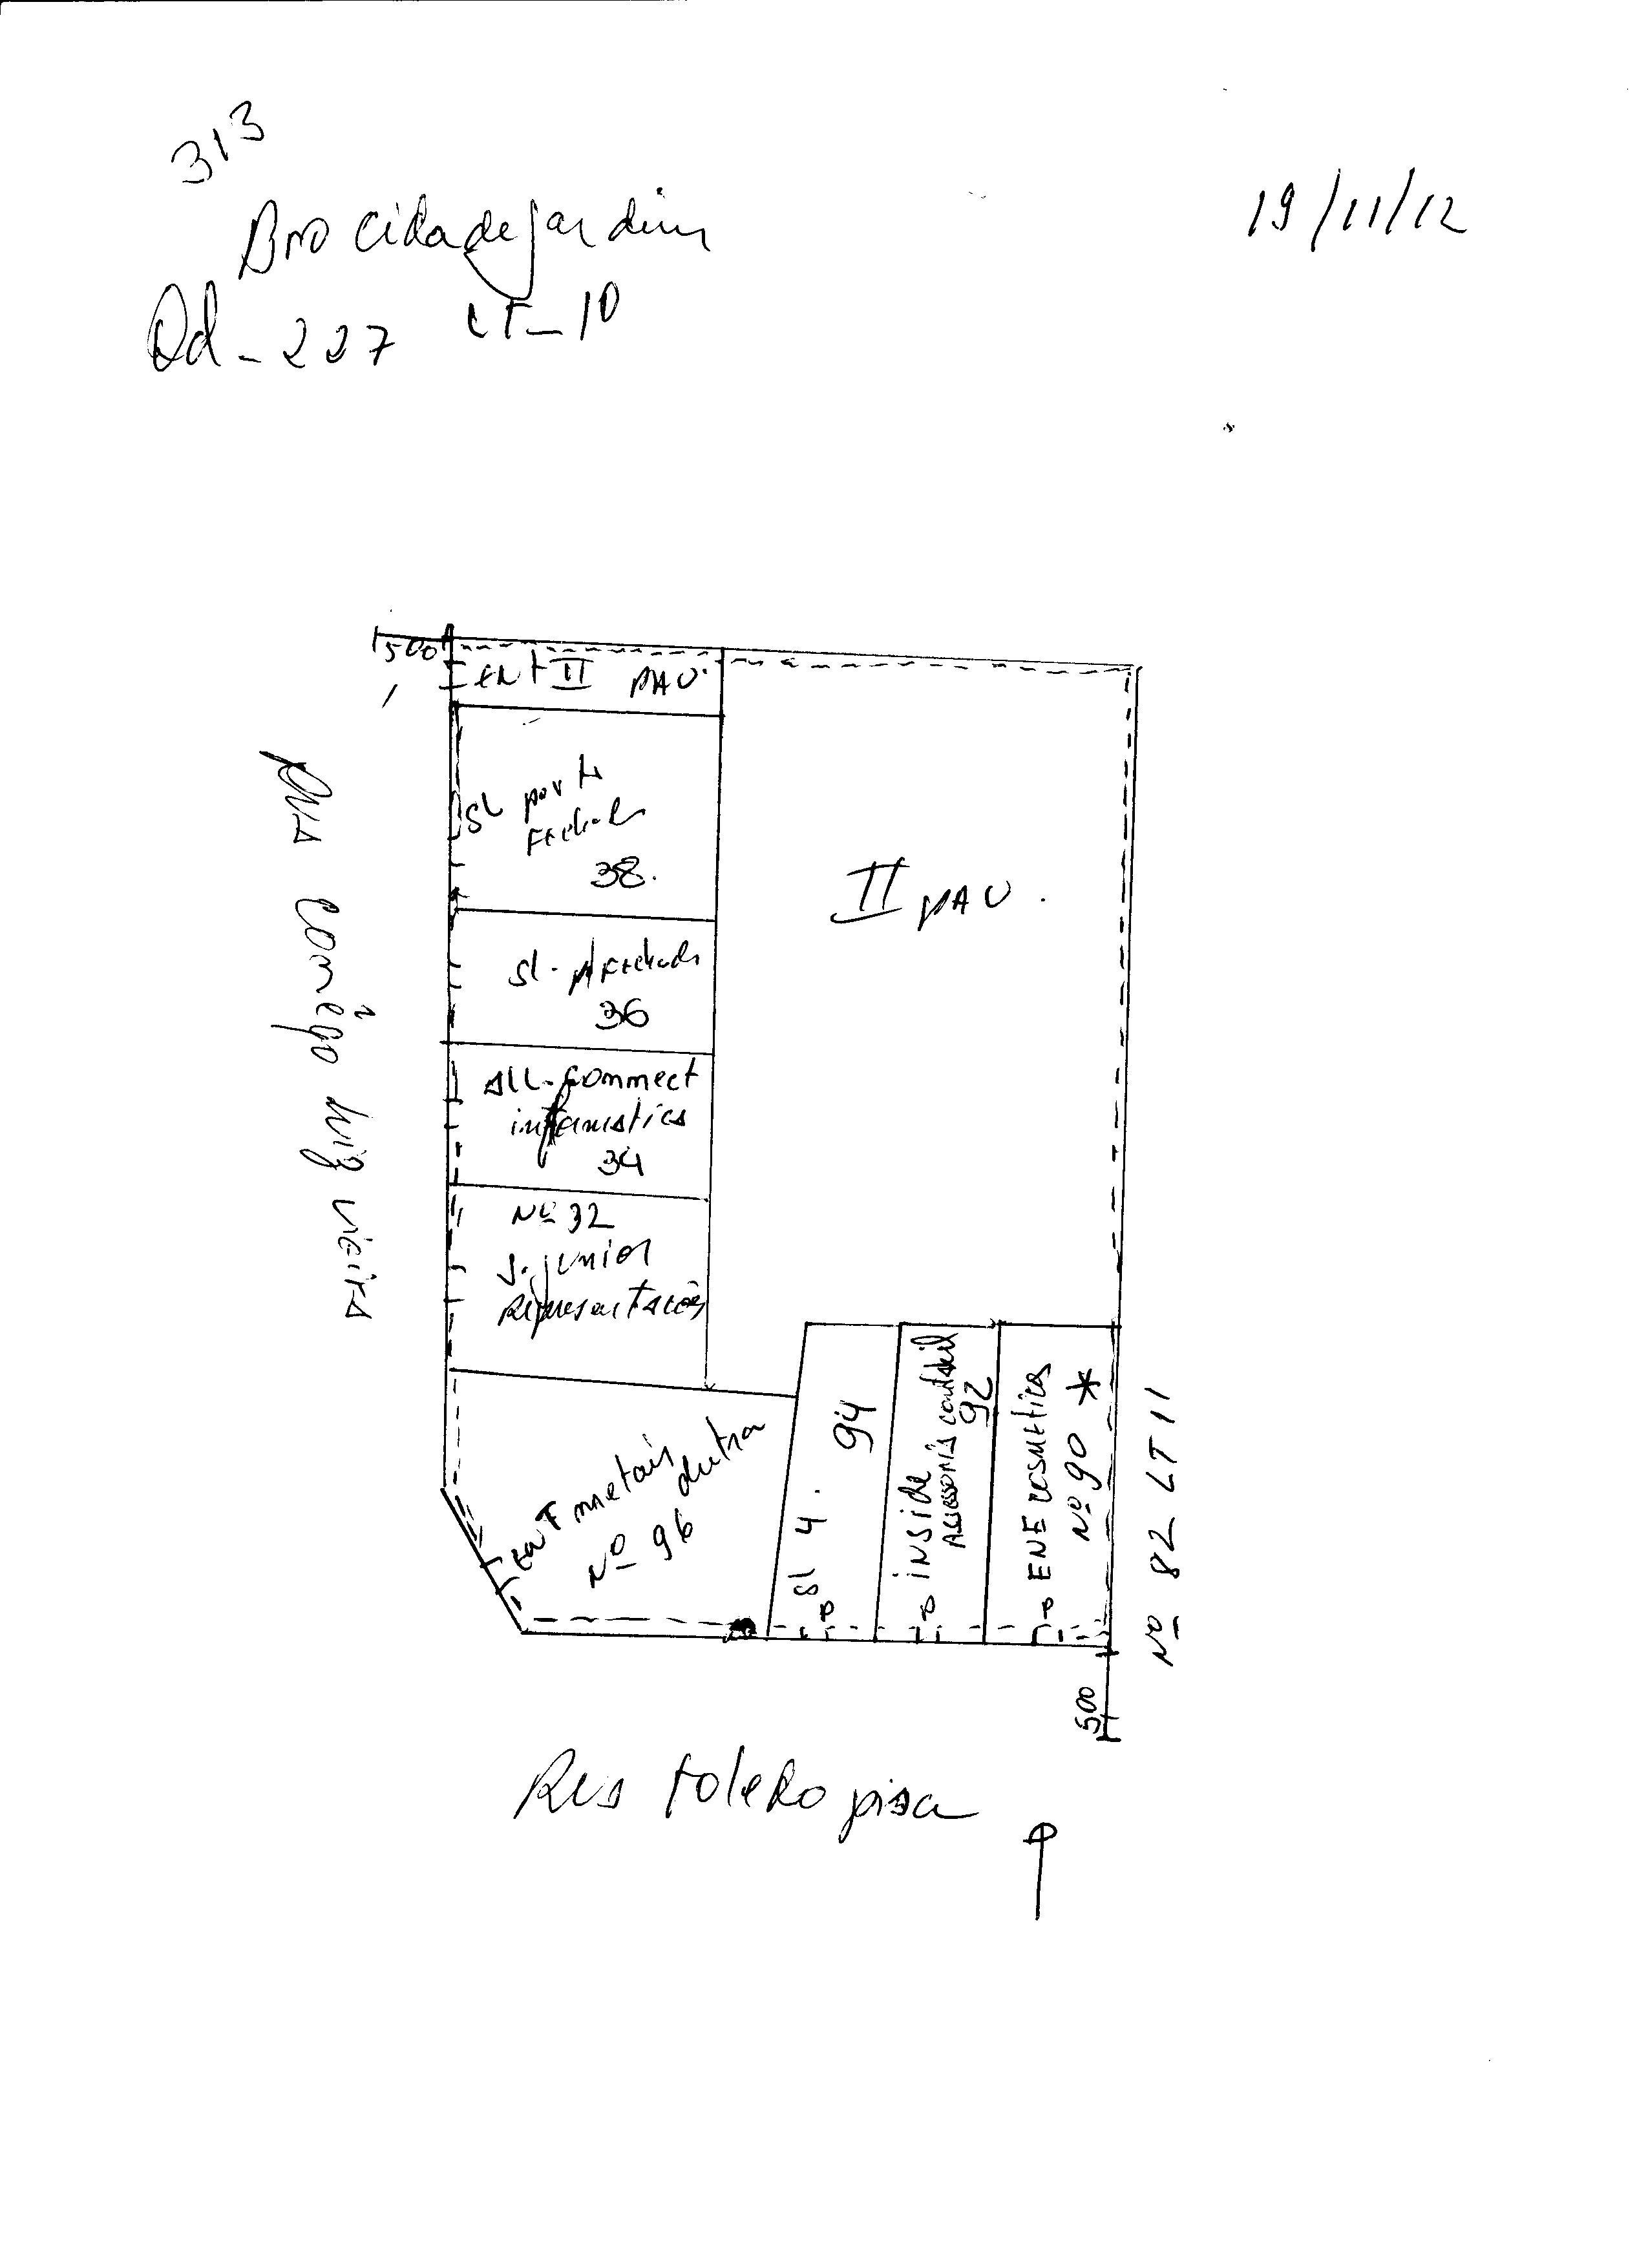 313
Bro Cidade jardim
19/11/12
Qd - 227 LT - 10
500
ENT II PAV.
SL porta
Fechada
38.
II PAV.
Sl. p/Fechada
36
ALL-Connect
informatica
34
Nº 32
S. junior
Representações
RUA Conêgo Luiz Vieira
ENT metais
dutra
Nº 96
Sl 4.
94
inside
Assessoria contabil
92
ENE cosmetica
Nº 90 *
Nº 82 LT 11
500
Rua toledo pisa